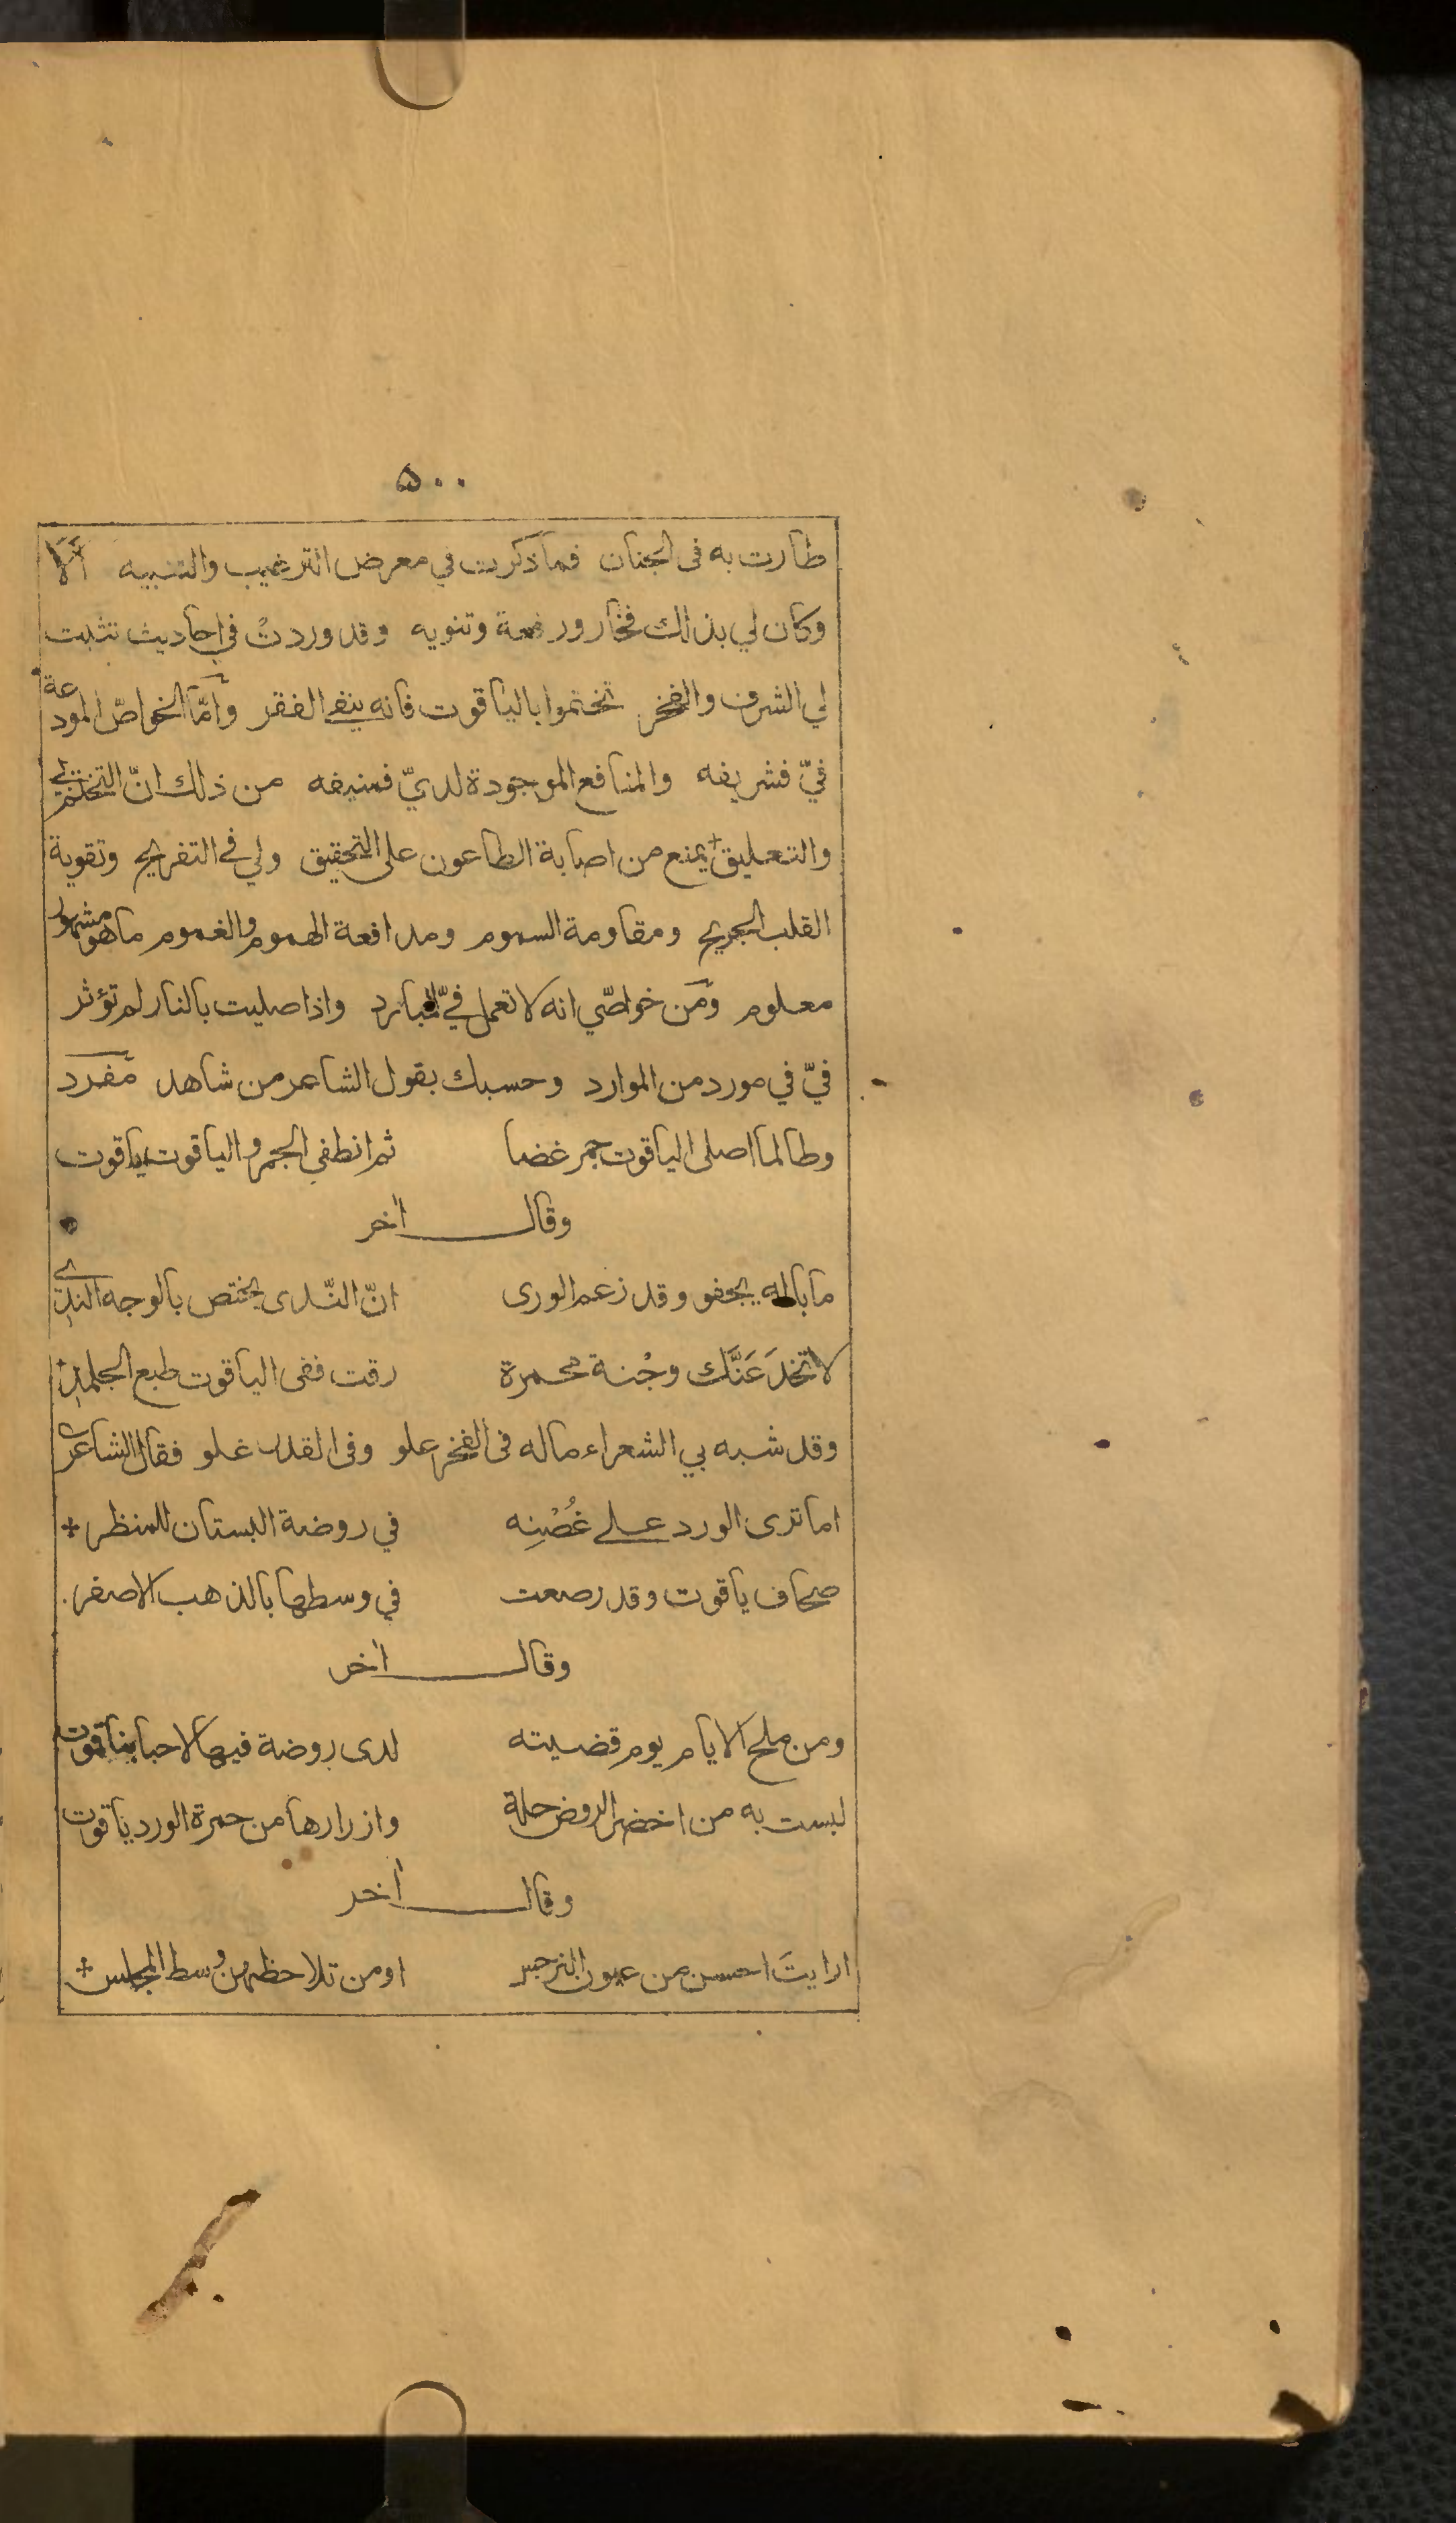 ٥٠٠
طارت به فى الجنان فما ذكرت في معرض الترغيب والتنبيه الّا
وكان لي بذلك فخار ورفعة وتنويه وقد وردتْ في احاديث تثبت
لي الشرف والفخر تختموا بالياقوت فانه ينفي الفقر وامّا الخواصّ المودعة
فيّ فشريفه والمنافع الموجودة لديّ فمنيفه من ذلك انّ التختم بي
والتعليق يمنع من اصابة الطاعون على التحقيق ولي في التفريح وتقوية
القلب الجريح ومقاومة السموم ومدافعة الهموم والغموم ما هو مشهور
معلوم ومن خواصّي انه لا تعمل فيّ المبارد واذا صليت بالنار لم تؤثر
فيّ في مورد من الموارد وحسبك بقول الشاعر من شاهد مفرد
وطالما اصلى الياقوت جمر غضا ثم انطفي الجمر والياقوت ياقوت
وقال اخر
ما باله يجفو وقد زعم الورى انّ النّدى يختص بالوجه الندي
لا تخدَعَنَّك وجْنة محمرة رقت ففى الياقوت طبع الجلمد
وقد شبه بي الشعراء ماله فى الفخر علو وفى القدر غلو فقال الشاعر
اما ترى الورد على غُصْنِه في روضة البستان للمنظر
صحاف ياقوت وقد رصعت في وسطها بالذهب الاصفر
وقال اخر
ومن ملح الايام يوم قضيته لدى روضة فيها الاحبابنا قوت
لبست به من اخضر الروض حلة وازرارها من حمرة الورد ياقوت
وقال اخر
ارايتَ احسن من عيون النرجس او من تلاحظهن وسط المجلس